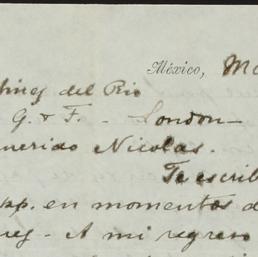 México, Ma
tinez del Rio
G. & F. - London -
querido Nicolas.
Te escrib
pp. en momentos d
reg. - A mi regreso